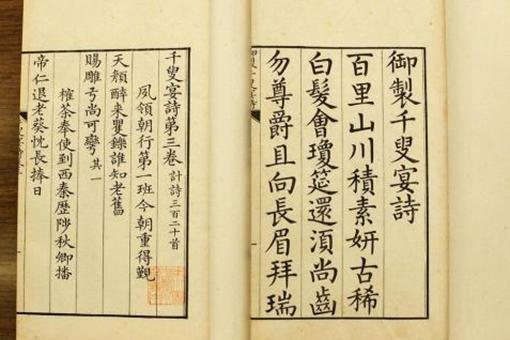 御製千叟宴詩
百里山川積素妍古稀
白髮會瓊筵還須尚齒
勿尊爵且向長眉拜瑞
千叟宴詩第三卷 計詩三百二十首
夙領朝行第一班今朝重得覲
天顏醉来矍鑠誰知老舊
賜雕弓尚可彎 其一
榷茶奉使到西秦歷陟秋卿播
帝仁退老葵忱長捧日